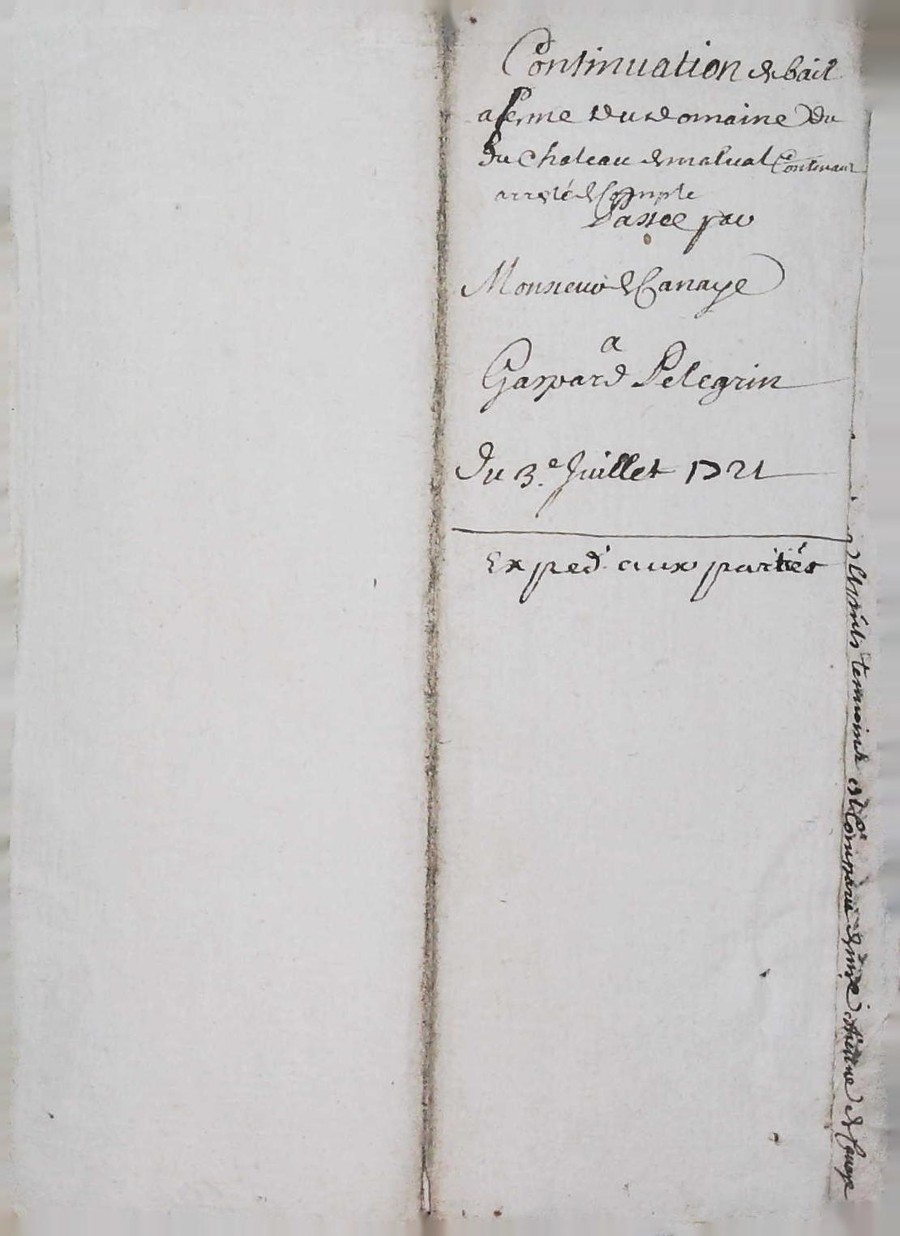 Continuation de bail
a ferme du domaine du
du chateau de malval Contenant
arresté de Compte
Passée par
Monsieur de Canaye
a
Gaspard Pelegrin
du 3.e Juillet 1721
Exped. aux parties
de Canaye